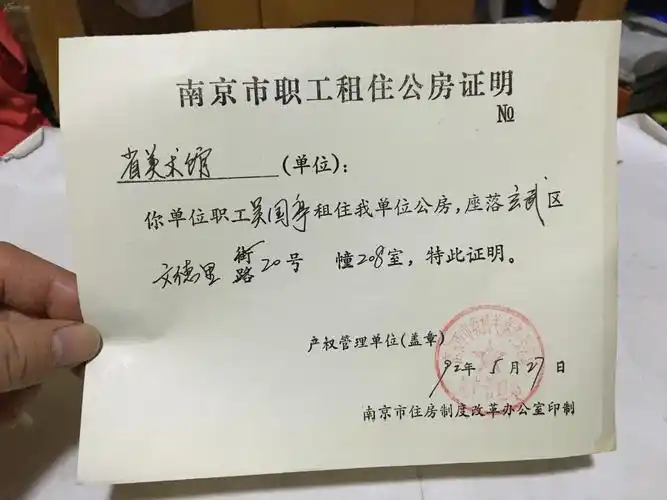 南京市职工租住公房证明
№
省美术馆(单位):
你单位职工吴国亭租住我单位公房,座落玄武区
文德里街路20号 幢208室,特此证明。
产权管理单位(盖章)
92年5月27日
南京市住房制度改革办公室印制